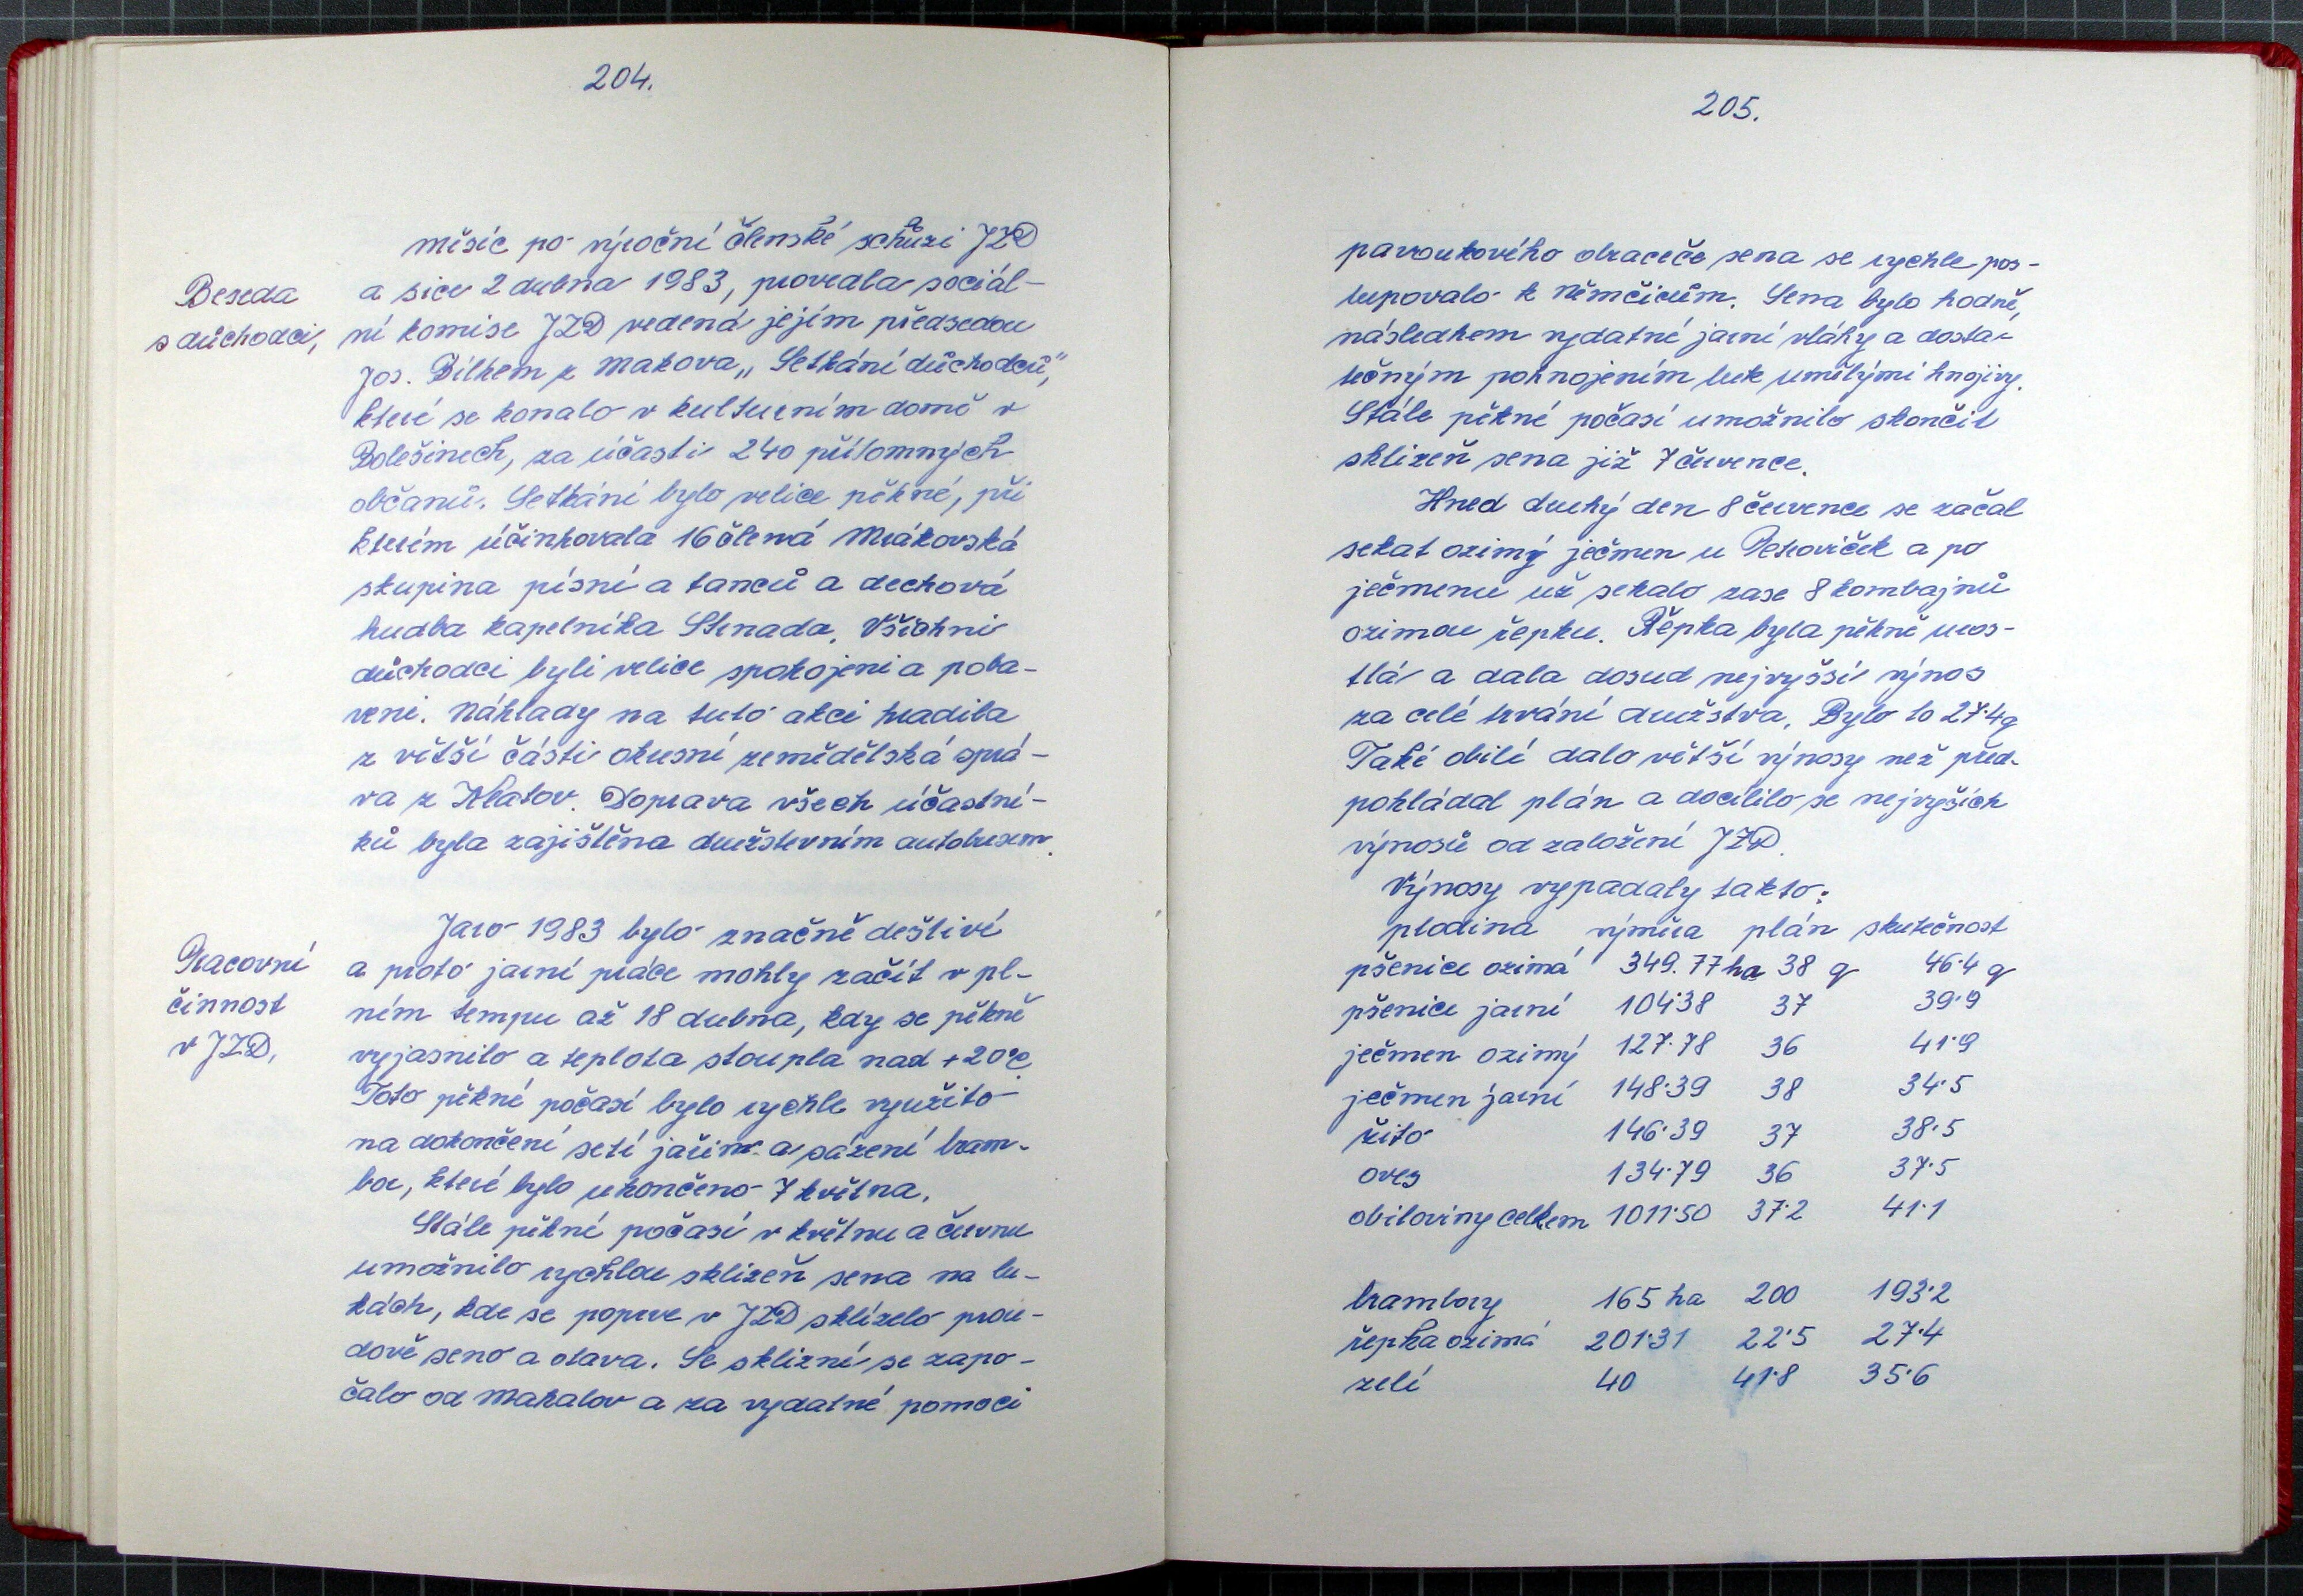 204.
měsíc po výroční členské schůzi JZD
Beseda
s důchodci,
a sice 2 dubna 1983, provedla sociál-
ní komise JZD vedená jejím předsedou
Jos. Bílkem z Makova „Setkání důchodců",
které se konalo v kulturním domě v
Bolešinech, za účasti 240 přítomných
občanů. Setkání bylo velice pěkné, při
kterém účinkovala 16 člená Mrákovská
skupina písní a tanců a dechová
hudba kapelníka Strnada. Všichni
důchodci byli velice spokojeni a poba-
veni. Náklady na tuto akci hradila
z větší části okresní zemědělská sprá-
va z Klatov. Doprava všech účastní-
ků byla zajištěna družstevním autobusem.
Pracovní
činnost
v JZD,
Jaro 1983 bylo značně deštivé
a proto jarní práce mohly začít v pl-
ném tempu až 18 dubna, kdy se pěkně
vyjasnilo a teplota stoupla nad +20°C.
Toto pěkné počasí bylo rychle využito
na dokončení setí jařin a sázení bram-
bor, které bylo ukončeno 7 května.
Stále pěkné počasí v květnu a červnu
umožnilo rychlou sklizeň sena na lu-
kách, kde se poprve v JZD sklízelo prou-
dově seno a otava. Se sklizní se zapo-
čalo od Makalov a za vydatné pomoci
205.
pavoukového obraceče sena se rychle pos-
tupovalo k Němčicům. Sena bylo hodně,
následkem vydatné jarní vláhy a dosta-
tečným pohnojením luk umělými hnojivy.
Stále pěkné počasí umožnilo skončit
sklizeň sena již 7 července.
Hned druhý den 8 července se začal
sekat ozimý ječmen u Petroviček a po
ječmenu už sekalo zase 8 kombajnů
ozimou řepku. Řepka byla pěkně uros-
tlá a dala dosud nejvyšší výnos
za celé trvání družstva. Bylo to 27·4q
Také obilí dalo větší výnosy než před-
pokládal plán a docílilo se nejvyších
výnosů od založení JZD.
Výnosy vypadaly takto:
plodina výměra plán skutečnost
pšenice ozimá 349.77 ha 38 q 46·4 q
pšenice jarní 104·38 37 39·9
ječmen ozimý 127·78 36 41·9
ječmen jarní 148·39 38 34·5
žito 146·39 37 38·5
oves 134·79 36 37·5
obiloviny celkem 1011·50 37·2 41·1
brambory 165 ha 200 193·2
řepka ozimá 201·31 22·5 27·4
zelí 40 41·8 35·6